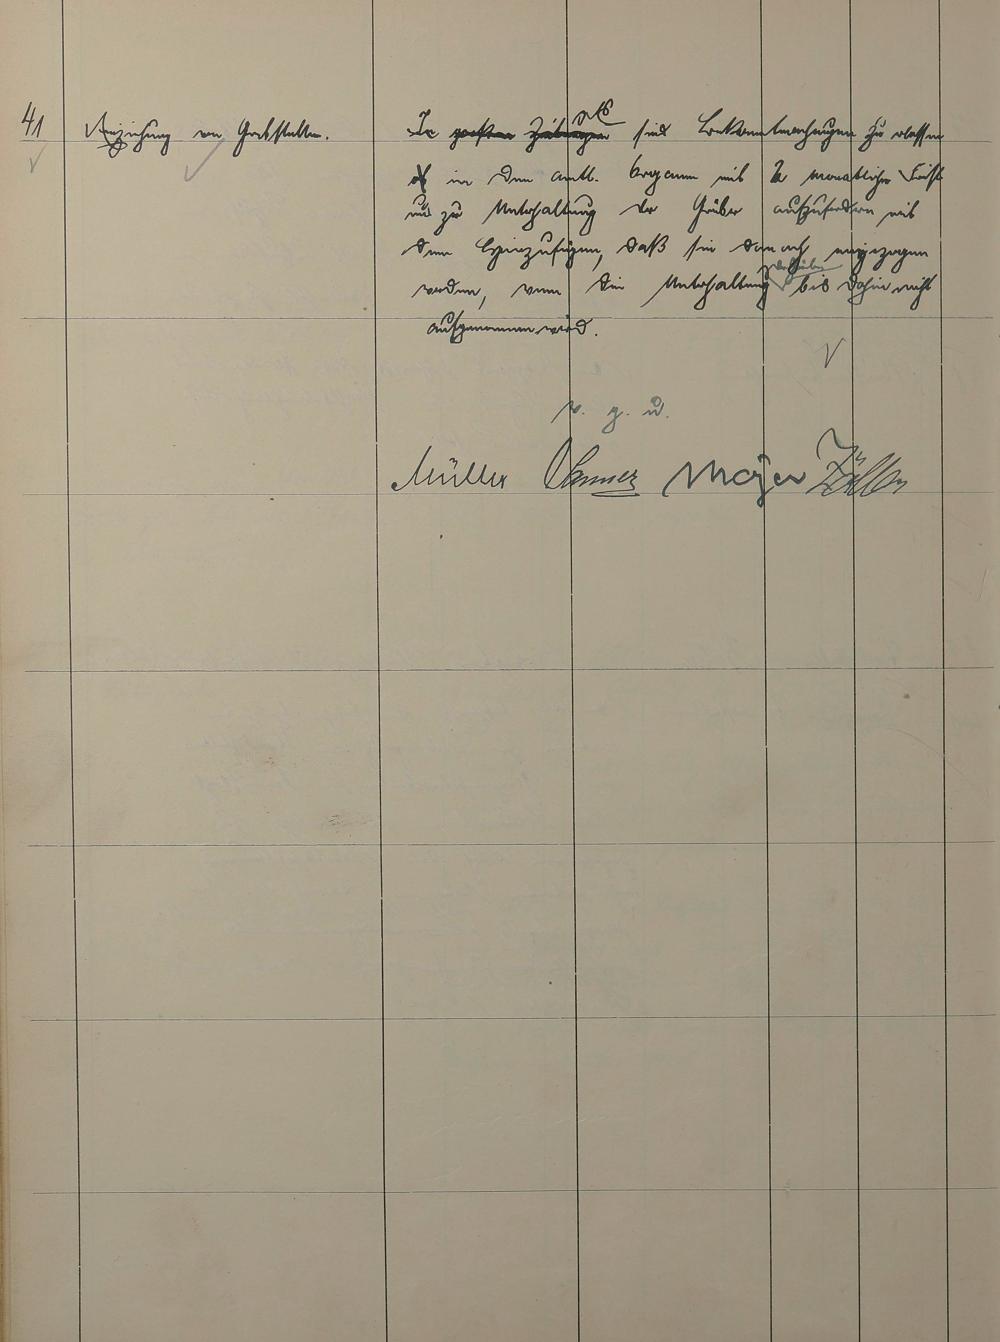 41 Einziehung von Grabstellen.
Zu sind Bekanntmachungen zu erlassen
in dem amtl. Organ mit 2 monatlicher Frist
und zur Unterhaltung der Gräber aufzufordern mit
dem Hinzufügen, daß sie danach eingezogen
werden, wenn die Unterhaltung derselben bis dahin nicht
aufgenommen wird.
v. g. u.
Müller Mayer Zöller